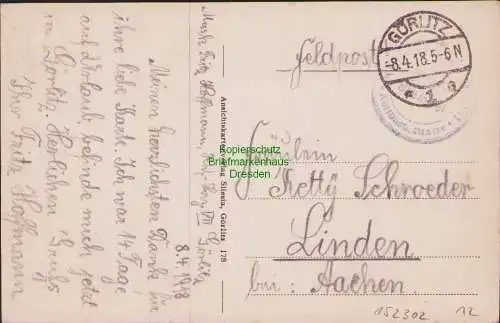 8.4.1918
Meinen herzlichsten Dank für
ihre liebe Karte. Ich war 14 Tage
auf Urlaub, befinde mich jetzt
in Görlitz. Herzlichen Gruß
Ihr Fritz Hoffmann
Musk. Fritz Hoffmann,
VII Görlitz
Ansichtskartenverlag Silesia, Görlitz 178
Feldpost
GÖRLITZ
-8.4.18.5-6N
* 2 a
Fräulein
Ketty Schroeder
Linden
bei: Aachen.
Kartenschop
Briefmarkenhaus
Deutschland
152302 12